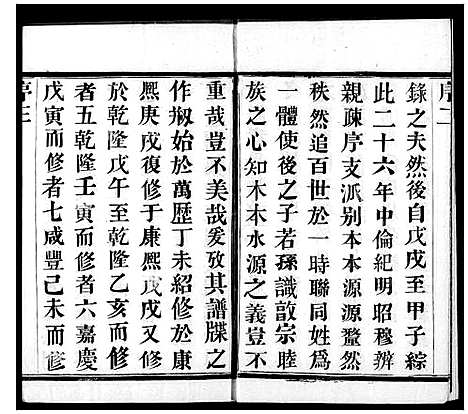 序二
錄之夫然後自戊戌至甲子綜
此二十六年中倫紀明昭穆辨
親疎序支派別本本源源鼇然
秩然追百世於一時聯同姓為
一體使後之子若孫識敦宗睦
族之心知木本水源之義豈不
重哉豈不美哉爰攷其譜牒之
作剏始於萬歷丁未紹修於康
熈庚戌復修于康熈戊戌又修
於乾隆戊午至乾隆乙亥而修
者五乾隆壬寅而修者六嘉慶
戊寅而修者七咸豐己未而修
序三